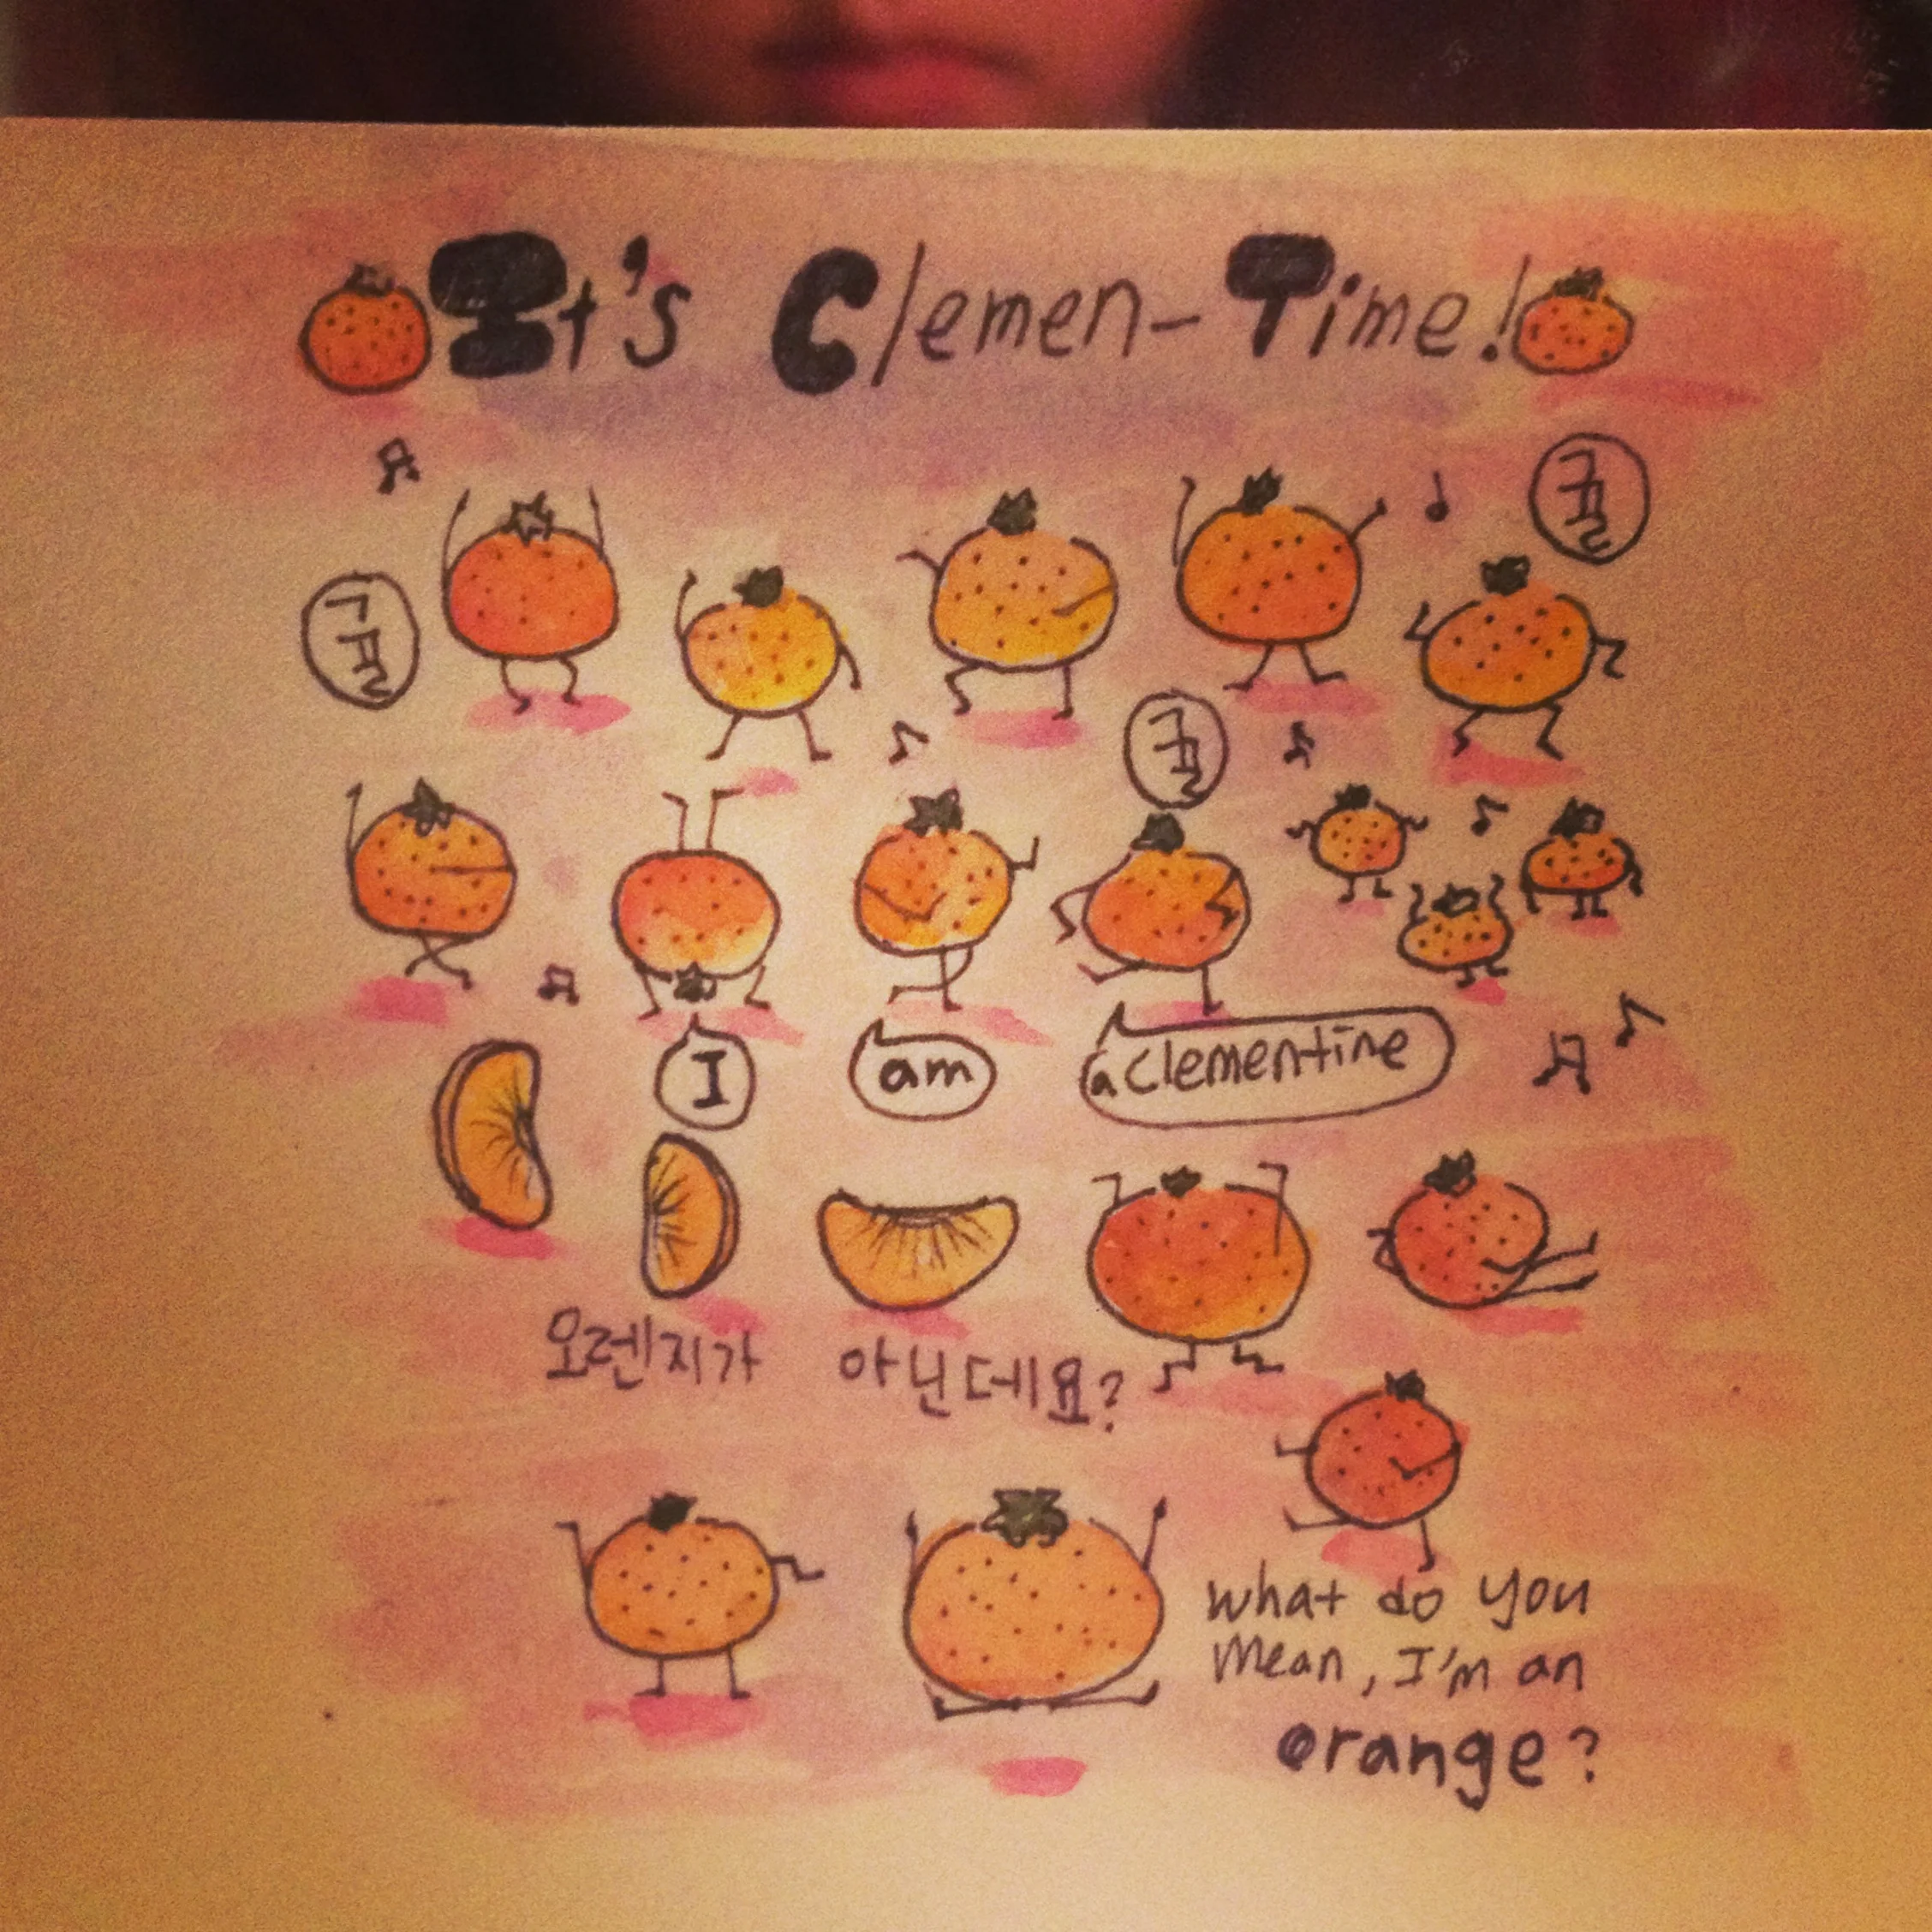 It's Clemen-Time!
귤
귤
귤
I
am
a clementine
오렌지가 아닌데요?
What do you
mean, I'm an
orange?